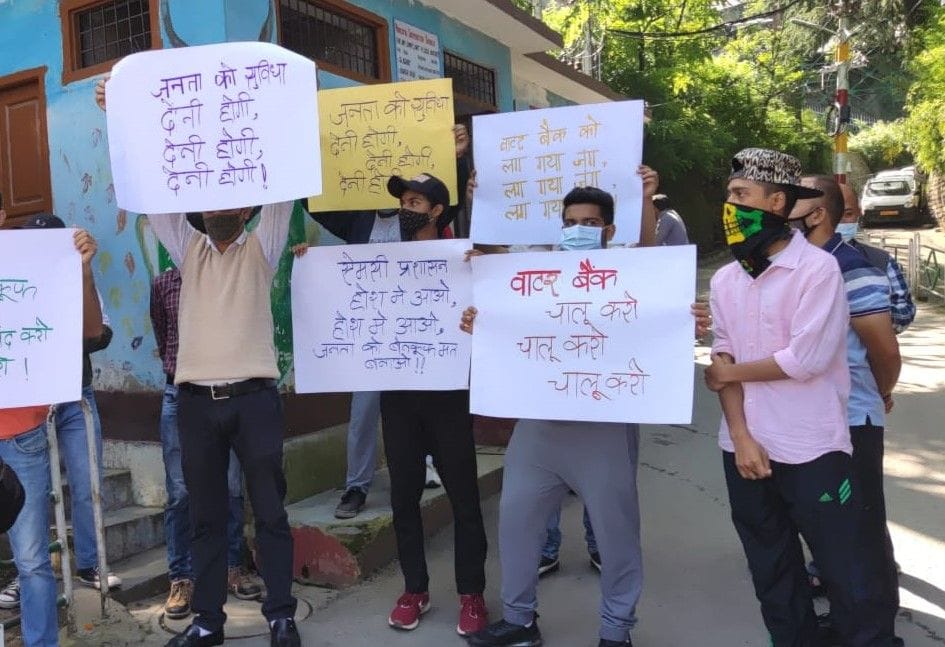 जनता को सुविधा
देनी होगी,
देनी होगी,
देनी होगी!
जनता को सुविधा
देनी होगी,
देनी होगी,
देनी होगी
वाटर बैंक को
लग गया जंग,
लग गया जंग,
लग गया
एमसी प्रशासन
होश मे आओ,
होश मे आओ,
जनता को बेवकूफ मत
बनाओ!!
वाटर बैंक
चालू करो
चालू करो
चालू करो
करो
!